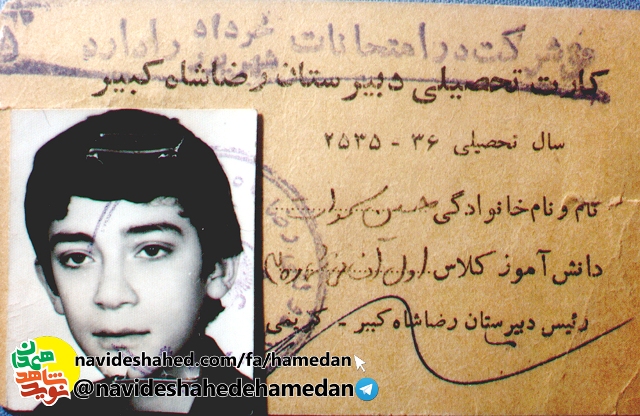 شرکت در امتحانات خرداد
شهریور را دارد
کارت تحصیلی دبیرستان رضاشاه کبیر
سال تحصیلی ۳۶ - ۲۵۳۵
نام و نام خانوادگی حسین
دانش آموز کلاس اول
رئیس دبیرستان رضاشاه کبیر - کریمی
نوید شاهد
همدان
navideshahed.com/fa/hamedan
@navideshahedehamedan